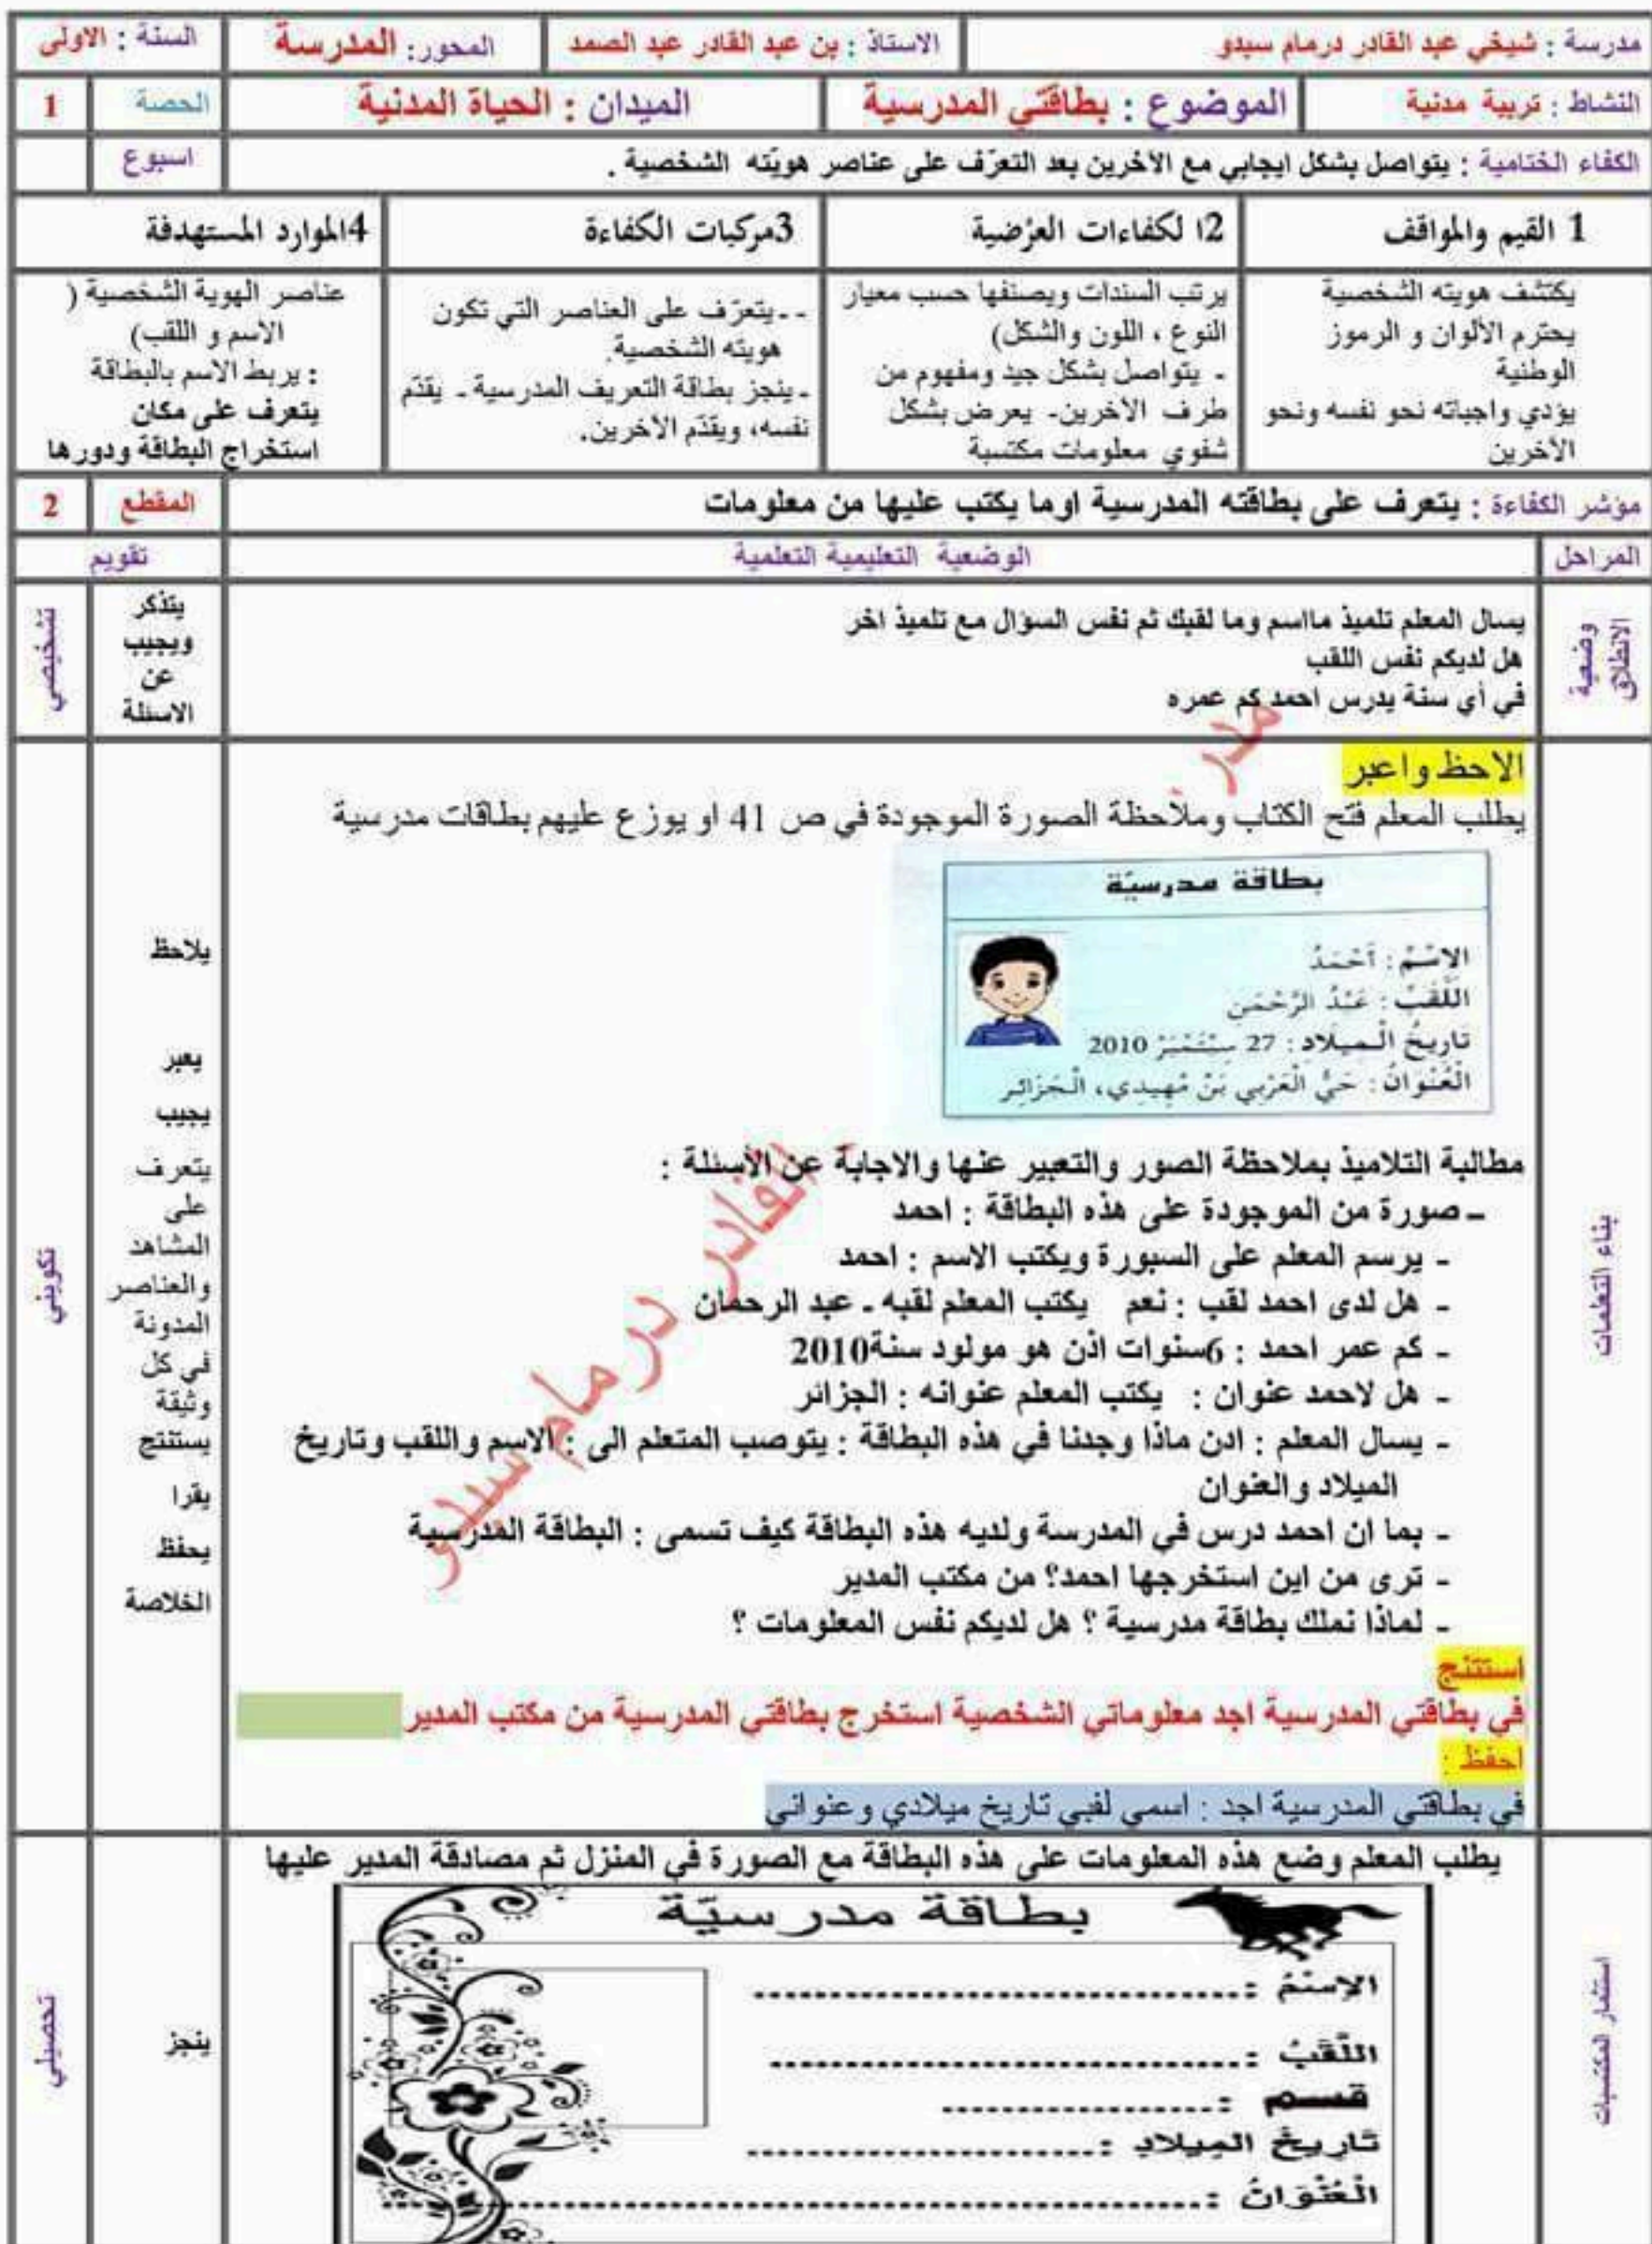 مدرسة : شيخي عبد القادر درمام سبدو
الاستاذ : بن عبد القادر عبد الصمد
المحور: المدرسة
السنة : الاولى
النشاط : تربية مدنية
الموضوع : بطاقتي المدرسية
الميدان : الحياة المدنية
الحصة
1
الكفاء الختامية : يتواصل بشكل ايجابي مع الآخرين بعد التعرّف على عناصر هويّته الشخصية .
اسبوع
1 القيم والمواقف
2ا لكفاءات العرْضية
3مركبات الكفاءة
4الموارد المستهدفة
يكتشف هويته الشخصية
يحترم الألوان و الرموز
الوطنية
يؤدي واجباته نحو نفسه ونحو
الآخرين
يرتب السندات ويصنفها حسب معيار
النوع ، اللون والشكل)
- يتواصل بشكل جيد ومفهوم من
طرف الآخرين- يعرض بشكل
شفوي معلومات مكتسبة
- -يتعرّف على العناصر التي تكون
هويته الشخصية.
- ينجز بطاقة التعريف المدرسية - يقدّم
نفسه، ويقدّم الآخرين.
عناصر الهوية الشخصية (
الاسم و اللقب)
: يربط الاسم بالبطاقة
يتعرف على مكان
استخراج البطاقة ودورها
مؤشر الكفاءة : يتعرف على بطاقته المدرسية اوما يكتب عليها من معلومات
المقطع
2
المراحل
الوضعية التعليمية التعلمية
تقويم
وضعية
الانطلاق
يسال المعلم تلميذ مااسم وما لقبك ثم نفس السؤال مع تلميذ اخر
هل لديكم نفس اللقب
في أي سنة يدرس احمد كم عمره
يتذكر
ويجيب
عن
الاسئلة
تشخيصي
بناء التعلمات
الاحظ واعبر
يطلب المعلم فتح الكتاب وملاحظة الصورة الموجودة في ص 41 او يوزع عليهم بطاقات مدرسية
بطاقة مدرسيّة
الاِسْمُ : أَحْمَدُ
اللَّقَبُ : عَبْدُ الرَّحْمَنِ
تَارِيخُ الْمِيلَادِ : 27 سِبْتَمْبَرْ 2010
الْعُنْوَانُ : حَيُّ الْعَرْبِي بَنْ مْهِيدِي، الْجَزَائِر
مطالبة التلاميذ بملاحظة الصور والتعبير عنها والاجابة عن الأسئلة :
– صورة من الموجودة على هذه البطاقة : احمد
- يرسم المعلم على السبورة ويكتب الاسم : احمد
- هل لدى احمد لقب : نعم يكتب المعلم لقبه - عبد الرحمان
- كم عمر احمد : 6سنوات اذن هو مولود سنة2010
- هل لاحمد عنوان : يكتب المعلم عنوانه : الجزائر
- يسال المعلم : ادن ماذا وجدنا في هذه البطاقة : يتوصب المتعلم الى : الاسم واللقب وتاريخ
الميلاد والعنوان
- بما ان احمد درس في المدرسة ولديه هذه البطاقة كيف تسمى : البطاقة المدرسية
- ترى من اين استخرجها احمد؟ من مكتب المدير
- لماذا نملك بطاقة مدرسية ؟ هل لديكم نفس المعلومات ؟
استنتج
في بطاقتي المدرسية اجد معلوماتي الشخصية استخرج بطاقتي المدرسية من مكتب المدير
احفظ :
في بطاقتي المدرسية اجد : اسمي لقبي تاريخ ميلادي وعنواني
يلاحظ
يعبر
يجيب
يتعرف
على
المشاهد
والعناصر
المدونة
في كل
وثيقة
يستنتج
يقرا
يحفظ
الخلاصة
تكويني
القادر درمام سبدو
استثمار المكتسبات
يطلب المعلم وضع هذه المعلومات على هذه البطاقة مع الصورة في المنزل ثم مصادقة المدير عليها
بطاقة مدرسيّة
الاِسْمُ :..............................
اللَّقَبُ :..............................
قسم :..................
تَارِيخُ المِيلادِ :......................
الْعُنْوَانُ :..................................................
ينجز
تحصيلي